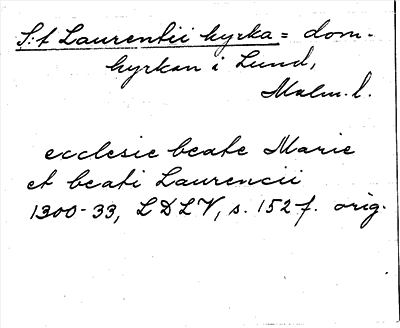 S:t Laurentii kyrka = dom-
kyrkan i Lund,
Malm. l.
ecclesie beate Marie
et beati Laurencii
1300-33, LDLV, s. 152 f. orig.